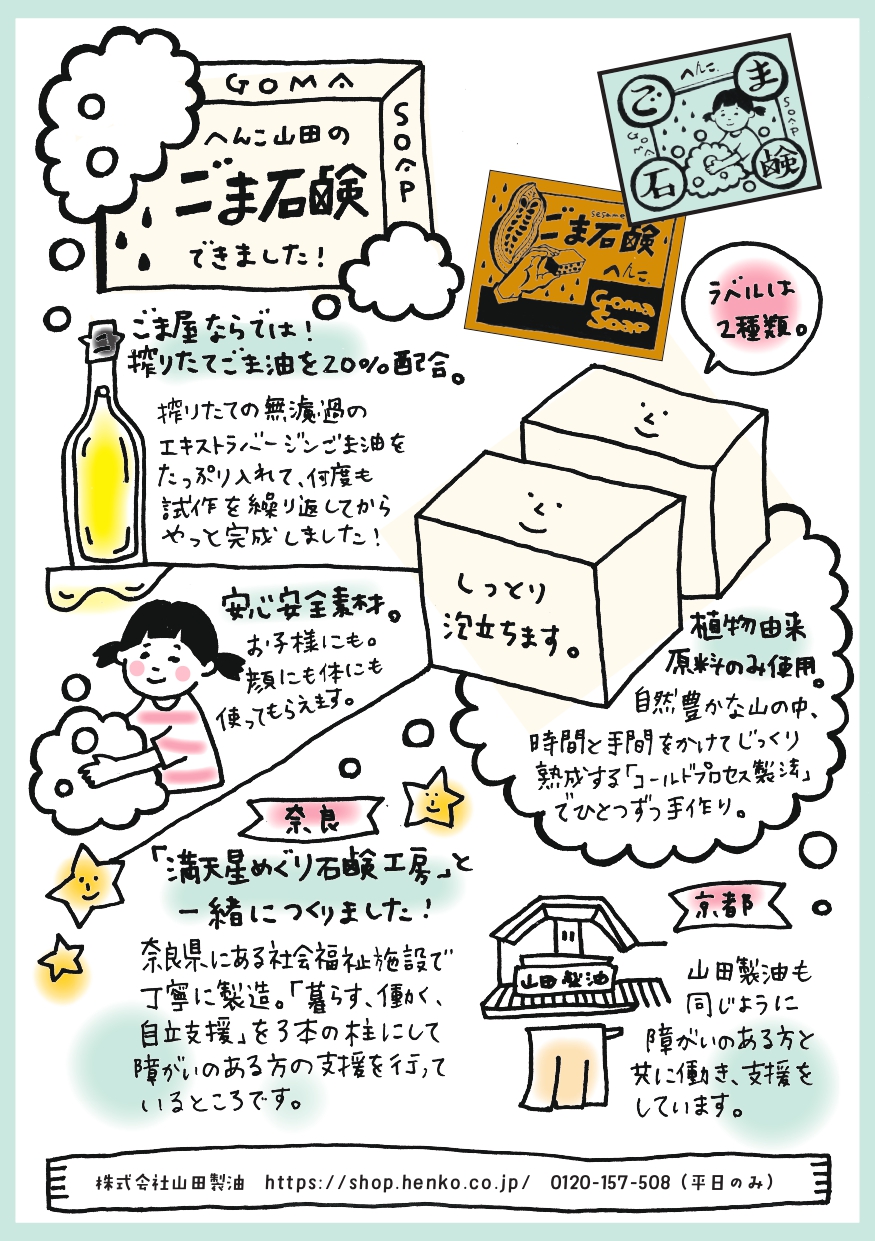 GOMA
SOAP
へんこ山田の
ごま石鹸
できました!
へんこ
ごま
石鹸
GOMA
SOAP
sesame
ごま石鹸
へんこ
Goma
Soap
ラベルは
2種類。
ごま屋ならでは!
搾りたてごま油を20%配合。
搾りたての無濾過の
エキストラバージンごま油を
たっぷり入れて、何度も
試作を繰り返してから
やっと完成しました!
しっとり
泡立ちます。
安心安全素材。
お子様にも。
顔にも体にも
使ってもらえます。
植物由来
原料のみ使用。
自然豊かな山の中、
時間と手間をかけてじっくり
熟成する「コールドプロセス製法」
でひとつずつ手作り。
奈良
「満天星めぐり石鹸工房」と
一緒につくりました!
奈良県にある社会福祉施設で
丁寧に製造。「暮らす、働く、
自立支援」を3本の柱にして
障がいのある方の支援を行って
いるところです。
京都
山田製油
山田製油も
同じように
障がいのある方と
共に働き、支援を
しています。
株式会社山田製油 https://shop.henko.co.jp/ 0120-157-508(平日のみ)